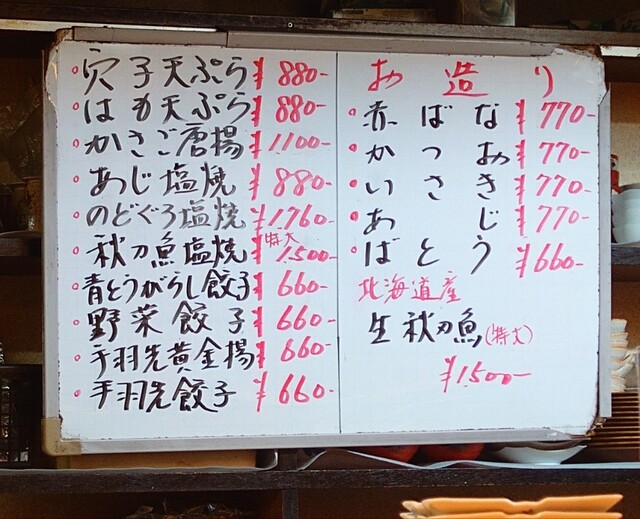 穴子天ぷら ¥880-
はも天ぷら ¥880-
かさご唐揚 ¥1100-
あじ塩焼 ¥880-
のどぐろ塩焼 ¥1,760-
秋刀魚塩焼 特大 ¥1,500-
青とうがらし餃子 ¥660-
野菜餃子 ¥660-
手羽先黄金揚 ¥660-
手羽先餃子 ¥660-
お造り
赤ばな ¥770-
かつお ¥770-
いさき ¥770-
あじ ¥770-
ばとう ¥660-
北海道産
生秋刀魚(特大)
¥1,500-